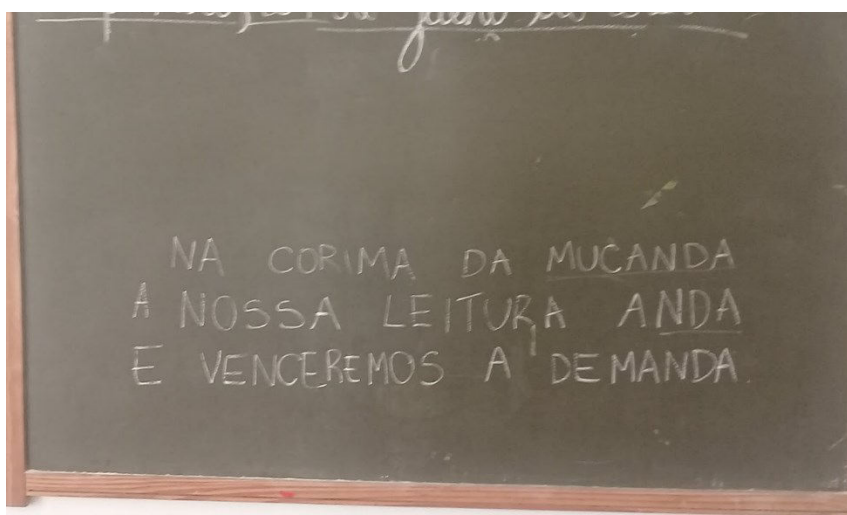 NA CORIMA DA MUCANDA
A NOSSA LEITURA ANDA
E VENCEREMOS A DEMANDA